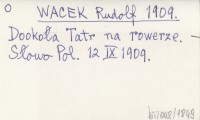 O WACEK Rudolf 1909.
Dookoła Tatr na rowerze. –
Słowo Pol. 12 IX 1909.